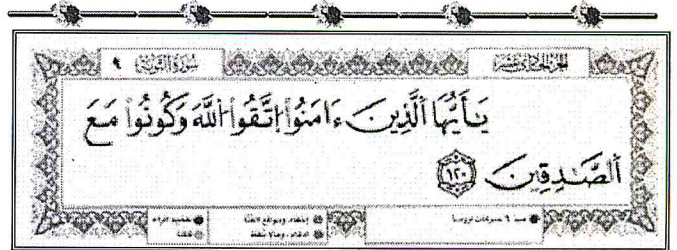 الجزء الحادي عشر سورة التوبة ٩
يَٰٓأَيُّهَا ٱلَّذِينَ ءَامَنُواْ اُ۪تَّقُواْ اُ۬للَّهَ وَكُونُواْ مَعَ
اَ۬لصَّٰدِقِينَ ١٢٠